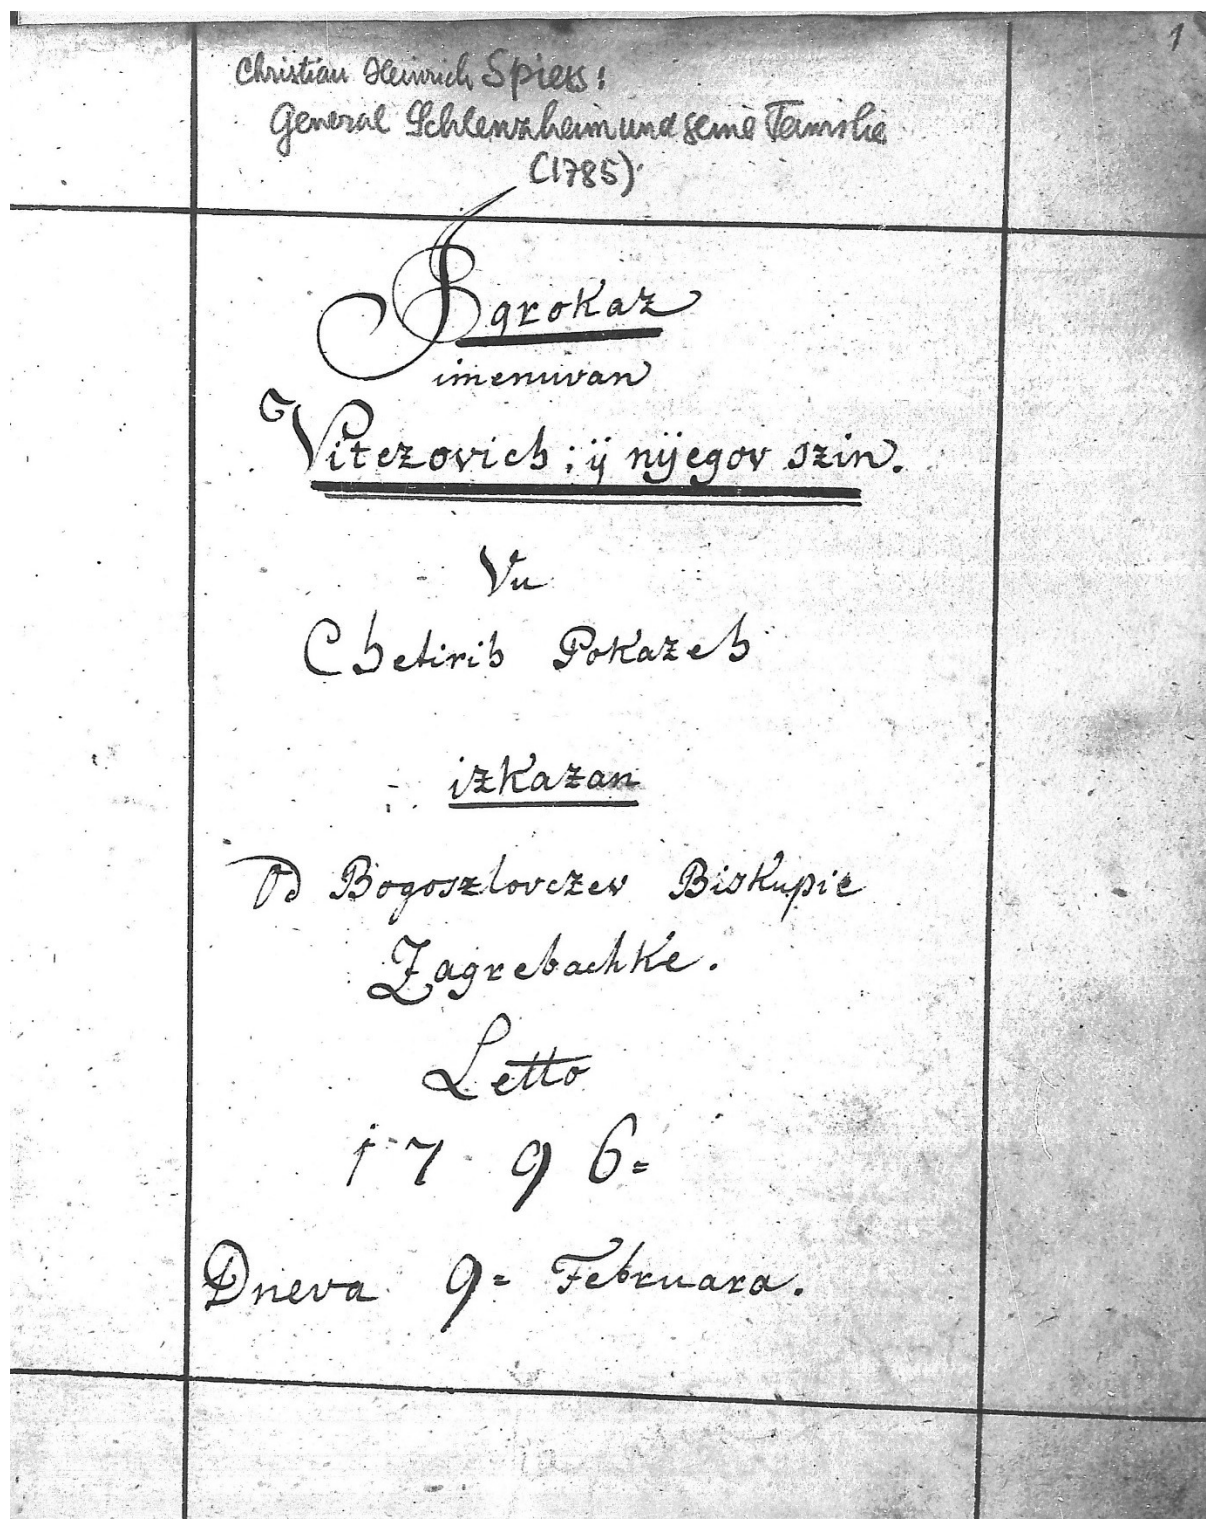 1
Christian Heinrich Spiess:
General Schlenzheim und seine Familie
(1785)
Igrokaz
imenuvan
Vitezovich; ij nijegov szin.
Vu
Chetirih Pokazeh
izkazan
Od Bogoszlovczev Biskupie
Zagrebachke.
Letto
1796=
Dneva 9= Februara.